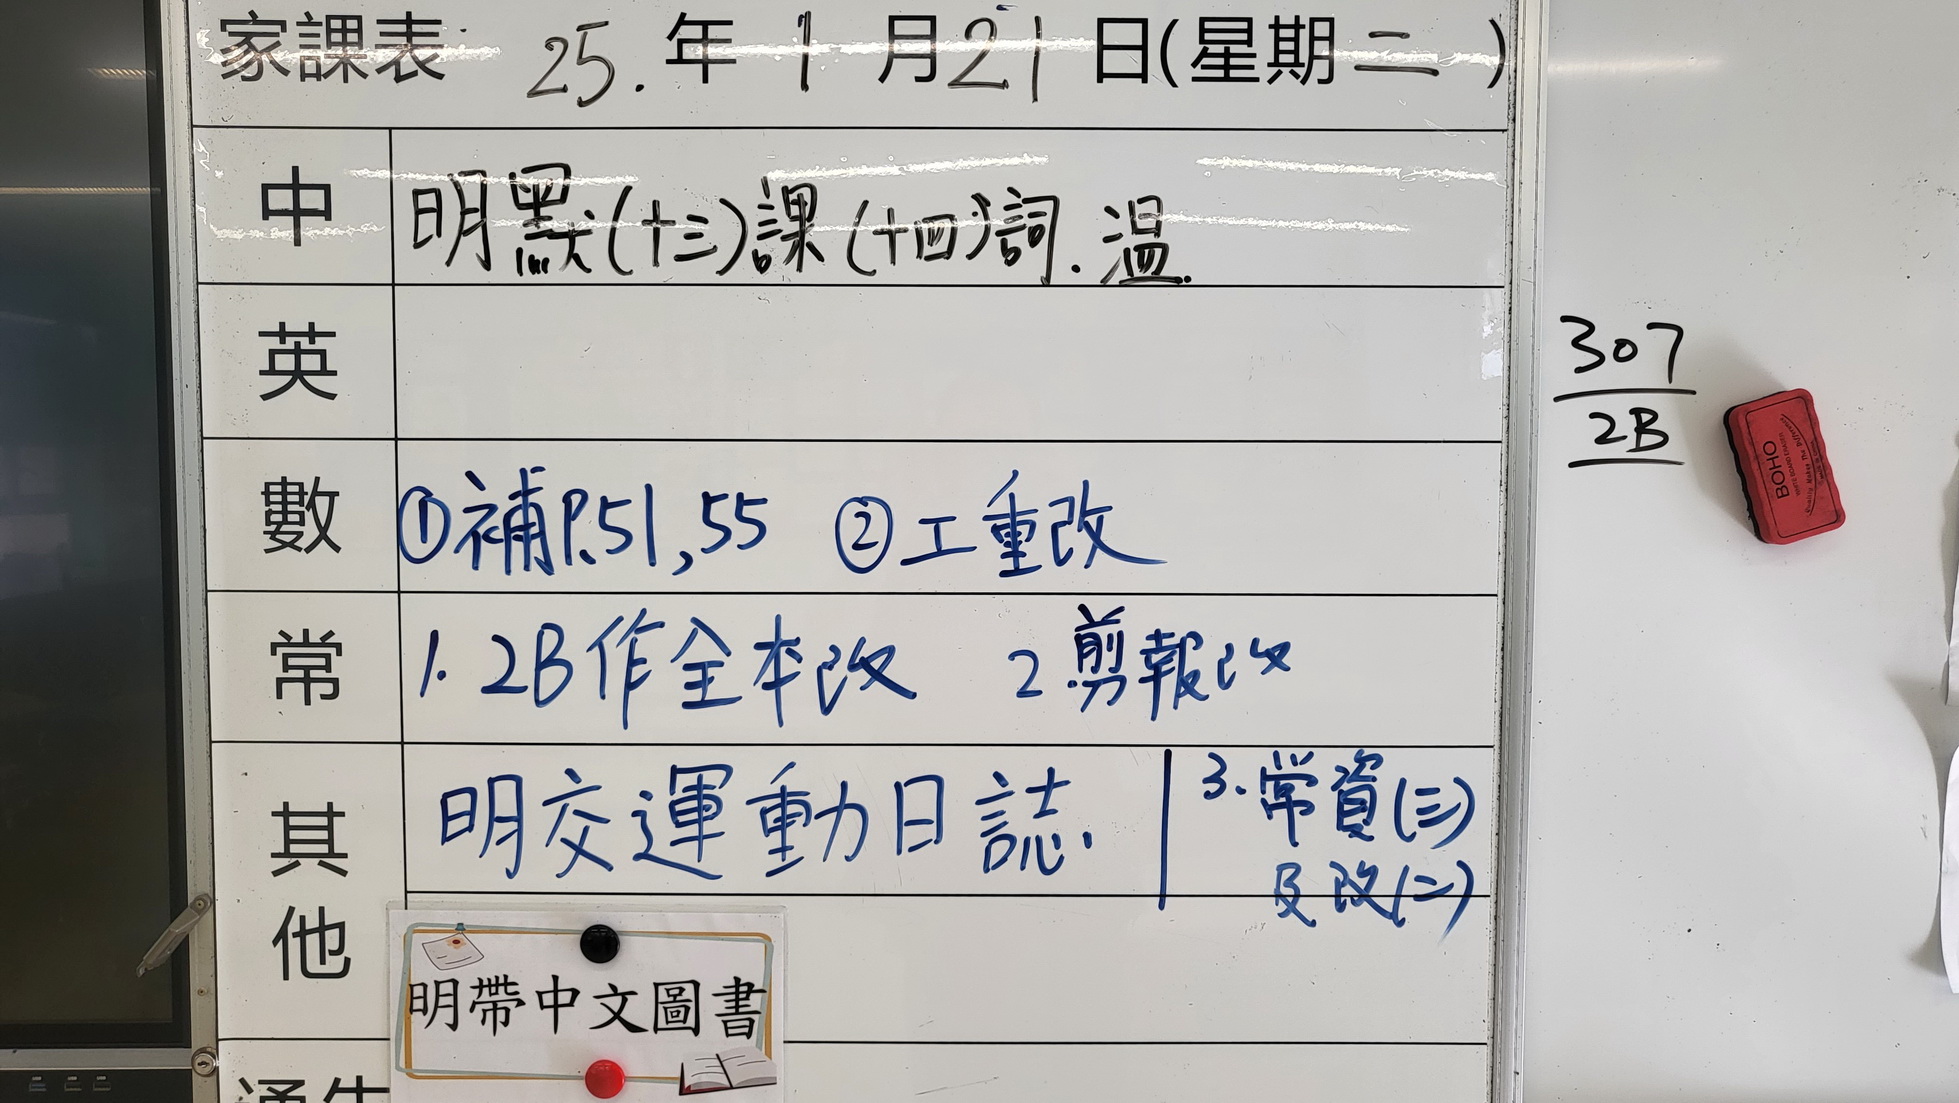 家課表 25.年 1 月21 日(星期二 )
中 明默(十三)課(十四)詞.溫.
英
數 ①補P.51,55 ②工重改
常 1. 2B作全本改 2剪報改
其他 明交運動日誌. 3.常資(三)
及改(二)
明帶中文圖書
307
2B
BOHO